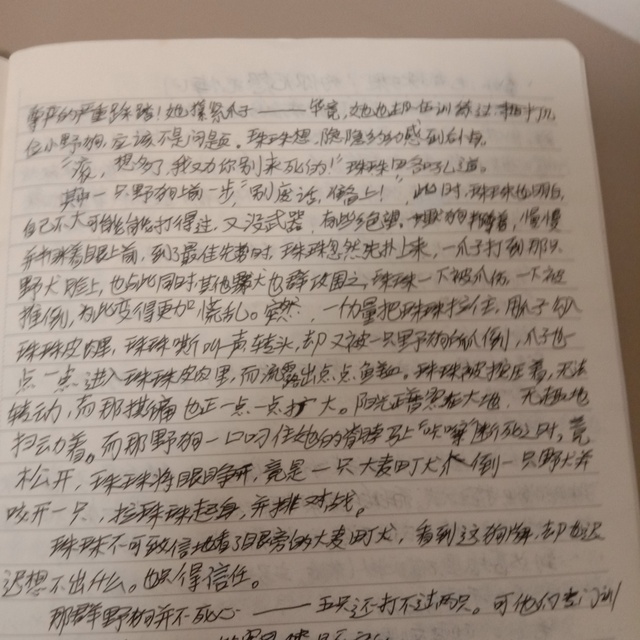 尊严的严重践踏！她握紧爪子——毕竟，她也却在训练过相十几
位小野狗，应该不是问题。珠珠想，隐隐约约感到右身
“滚，想多了，我又为你别来死的！”珠珠四吼道。
其中一只野狗上前一步“别废话，准备上！”，此时，珠珠也明白，
自己不大可能能打得过，又没武器，有些绝望。慢慢
着眼上前，到了最佳先势时，珠珠忽然先扑上来，一爪子打到那只
野犬脸上，也与此同时其他犬也群攻围之，珠珠一下被爪伤，一下被
推倒，为此变得更加慌乱。突然，一力量把珠珠拉住，用爪子勾入
珠珠皮肉里，珠珠嘶叫声转头，却又被一只野狗所爪倒，爪子也一
点一点进入珠珠皮肉里，而流露出点点鱼血。珠珠被按压着，无法
转动，而那撕痛也正一点一点扩大。阳光正普照在大地，无力地
扫动着。而那野狗一口叼住她的脊骨马上“咔嚓”断死之时，竟
松开，珠珠将眼睁开，竟是一只大麦町犬扑倒一只野犬并
咬开一只，拉珠珠起身，并排对战。
珠珠不可致信地看了眼旁的大麦町犬，看到这狗牌，却也迟
迟想不出什么。也只得信任。
那群野狗并不死心——五只还打不过两只。可他们专门训